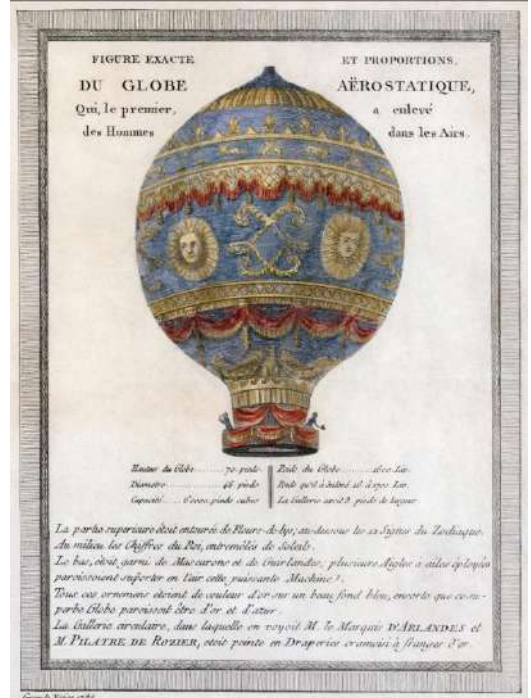 FIGURE EXACTE ET PROPORTIONS,
DU GLOBE AËROSTATIQUE,
Qui, le premier, a enlevé
des Hommes dans les Airs.
Hauteur du Globe........70 pieds.
Diametre........46 pieds
Capacité......60000 pieds cubes
Poids du Globe........1600 Liv.
Poids qu'il a enlevé 16 à 1700 Liv.
La Gallerie avoit 3 pieds de largeur
La partie superieure étoit entourée de Fleurs-de-lys; au-dessous les 12 Signes du Zodiaque.
Au milieu les Chiffres du Roi, entremêlés de Soleils.
Le bas, étoit garni de Mascarons et de Guirlandes; plusieurs Aigles à ailes éployées
paroissoient suporter en l'air cette puissante Machine.
Tous ces ornemens étoient de couleur d'or sur un beau fond bleu, ensorte que ce su-
perbe Globe paroissoit être d'or et d'azur.
La Gallerie circulaire, dans laquelle on voyoit M. le Marquis D'ARLANDES et
M. PILATRE DE ROZIER, etoit peinte en Draperies cramoisi à franges d'or.